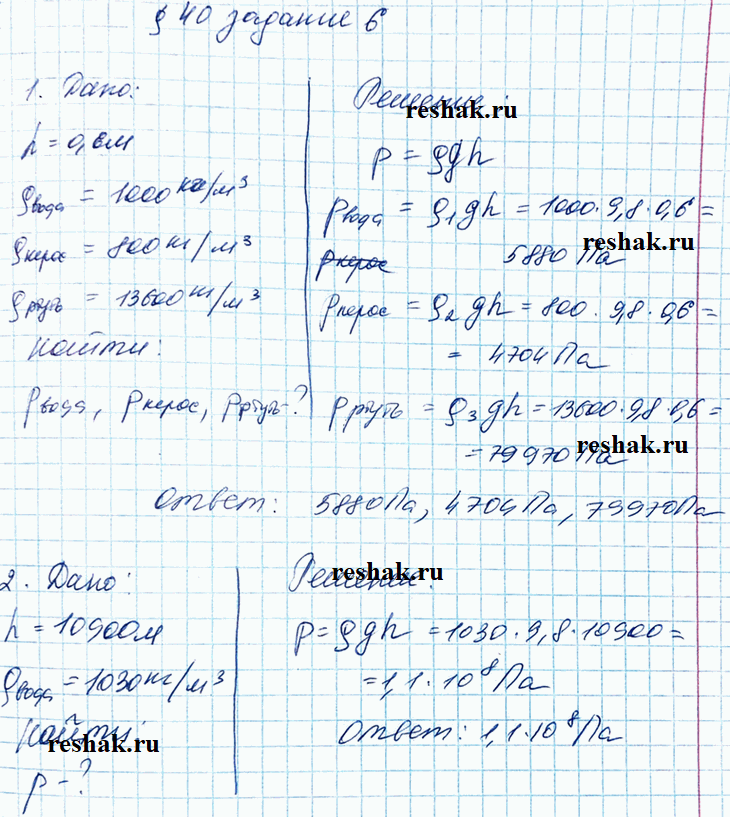 § 40 задание 6
1. Дано:
h = 0,6м
ρвода = 1000 кг/м³
ρкерос = 800 кг/м³
ρртуть = 13600 кг/м³
Найти:
pвода, pкерос, pртуть-?
Решение:
reshak.ru
p = ρgh
pвода = ρ₁gh = 1000·9,8·0,6 =
reshak.ru
pкерос 5880 Па
pкерос = ρ₂gh = 800·9,8·0,6 =
= 4704 Па
pртуть = ρ₃gh = 13600·9,8·0,6 =
= 79970 Па
reshak.ru
Ответ: 5880 Па, 4704 Па, 79970 Па
2. Дано:
h = 10900м
ρвода = 1030 кг/м³
Найти:
reshak.ru
p-?
Решение:
reshak.ru
p = ρgh = 1030·9,8·10900 =
= 1,1·10⁸ Па
Ответ: 1,1·10⁸ Па